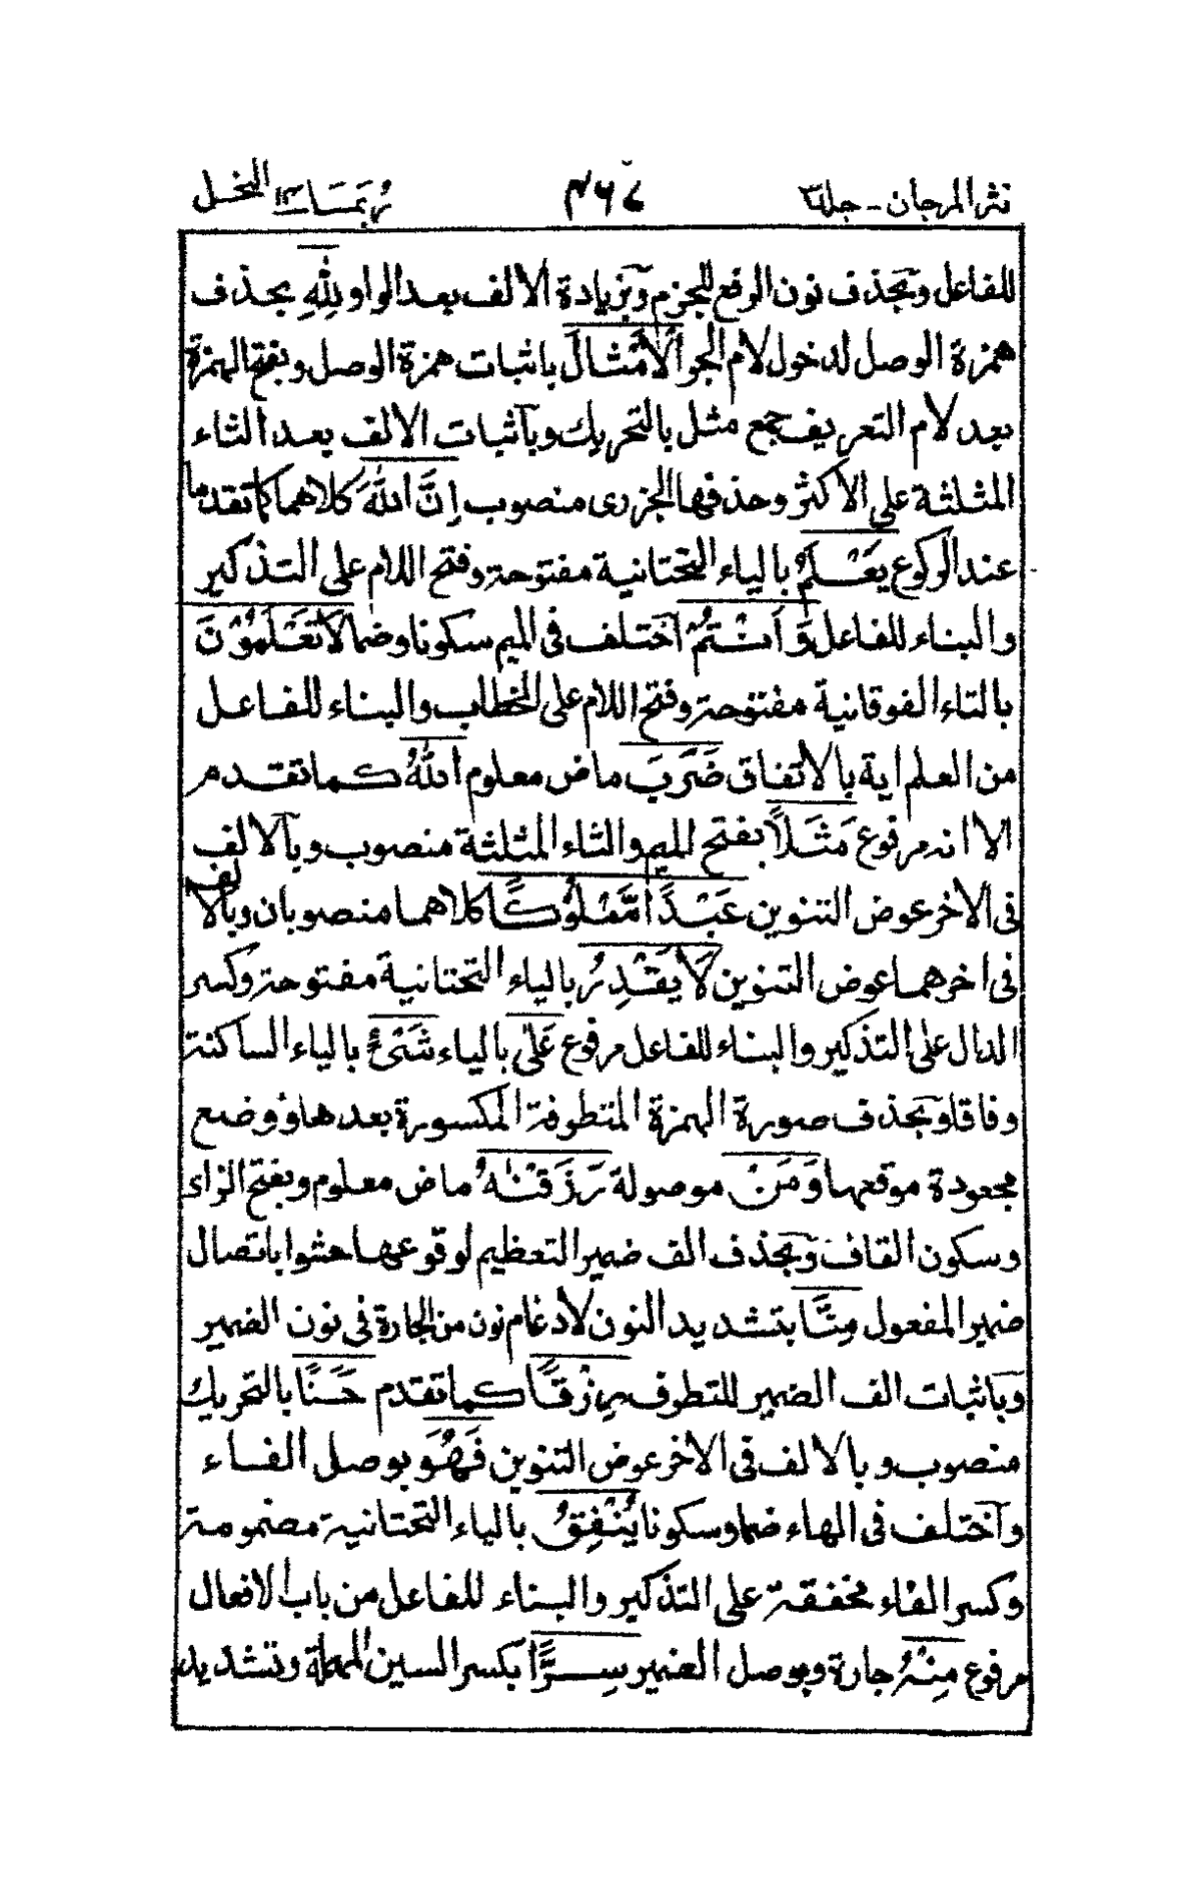 نثر المرجان - جلد٣ ٤٦٧ ربما ١٤ النحل
للفاعل وبحذف نون الرفع للجزم وبزيادة الالف بعد الواو لِلّٰهِ بحذف
همزة الوصل لدخول لام الجر الْاَمْثَالَ باثبات همزة الوصل وبفتح الهمزة
بعد لام التعريف جمع مثل بالتحريك وباثبات الالف بعد الثاء
المثلثة على الاكثر وحذفها الجزرى منصوب اِنَّ اللّٰهَ كلاهما كما تقدما
عند الركوع يَعْلَمُ بالياء التحتانية مفتوحة وفتح اللام على التذكير
والبناء للفاعل وَاَنْتُمْ اختلف فى الميم سكونا وضما لَا تَعْلَمُوْنَ
بالتاء الفوقانية مفتوحة وفتح اللام على الخطاب والبناء للفاعل
من العلم اية بالاتفاق ضَرَبَ ماض معلوم اللّٰهُ كما تقدم
الا انه مرفوع مَثَلًا بفتح الميم والثاء المثلثة منصوب وبالالف
فى الاخر عوض التنوين عَبْدًا مَّمْلُوْكًا كلاهما منصوبان وبالالف
فى اخرهما عوض التنوين لَا يَقْدِرُ بالياء التحتانية مفتوحة وكسر
الدال على التذكير والبناء للفاعل مرفوع عَلٰى بالياء شَىْءٍ بالياء الساكنة
وفاقا وبحذف صورة الهمزة المتطرفة المكسورة بعدها ووضع
مجعودة موقعها وَمَنْ موصولة رَزَقْنٰهُ ماض معلوم وبفتح الزاى
وسكون القاف وبحذف الف ضمير التعظيم لوقوعها حشوا باتصال
ضمير المفعول مِنَّا بتشديد النون لادغام نون من الجارة فى نون الضمير
وباثبات الف الضمير للتطرف رِزْقًا كما تقدم حَسَنًا بالتحريك
منصوب وبالالف فى الاخر عوض التنوين فَهُوَ بوصل الفاء
واختلف فى الهاء ضما وسكونا يُنْفِقُ بالياء التحتانية مضمومة
وكسر الفاء مخففة على التذكير والبناء للفاعل من باب الافعال
مرفوع مِنْهُ جارة وبوصل الضمير سِرًّا بكسر السين المهملة وتشديد